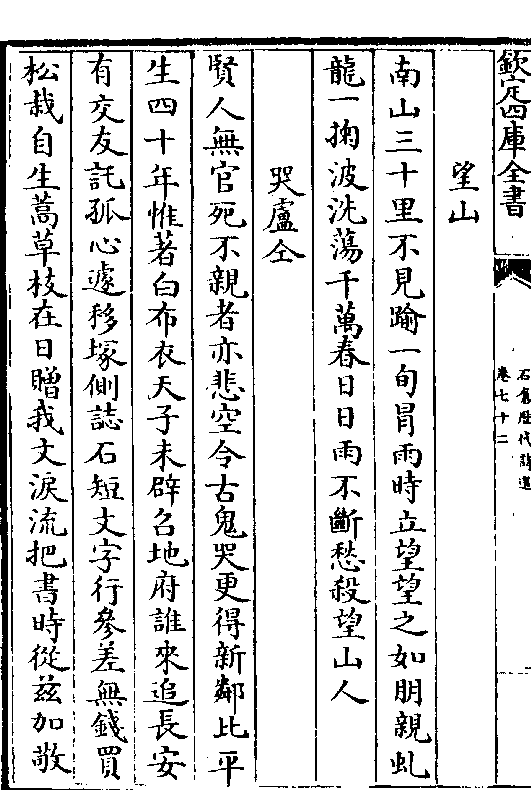 欽定四庫全書
石倉歷代詩選
卷七十二
望山
南山三十里不見踰一旬冒雨時立望望之如朋親虬
龍一掬波洗蕩千萬春日日雨不斷愁殺望山人
哭盧仝
賢人無官死不親者亦悲空令古鬼哭更得新鄰比平
生四十年惟著白布衣天子未辟召地府誰來追長安
有交友託孤心遽移塚側誌石短文字行參差無錢買
松栽自生蒿草枝在日贈我文淚流把書時從茲加敬